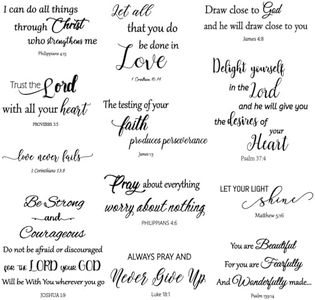 I can do all things
through Christ
who strengthens me
Philippians 4:13
Let all
that you do
be done in
Love
1 Corinthians 16:14
Draw close to God
and he will draw close to you
James 4:8
Trust the Lord
with all your heart
PROVERBS 3:5
The testing of your
faith
produces perseverance
James 1:3
Delight yourself
in the Lord
and he will give you
the desires of
your
Heart
Psalm 37:4
love never fails
1 Corinthians 13:8
Pray about everything
worry about nothing
PHILIPPIANS 4:6
LET YOUR LIGHT
shine
Matthew 5:16
Be Strong
and
Courageous
Do not be afraid or discouraged
for the LORD your GOD
Will be With You wherever you go
JOSHUA 1:9
ALWAYS PRAY AND
Never Give Up
Luke 18:1
You are Beautiful
For you are Fearfully
And Wonderfully made...
Psalm 139:14